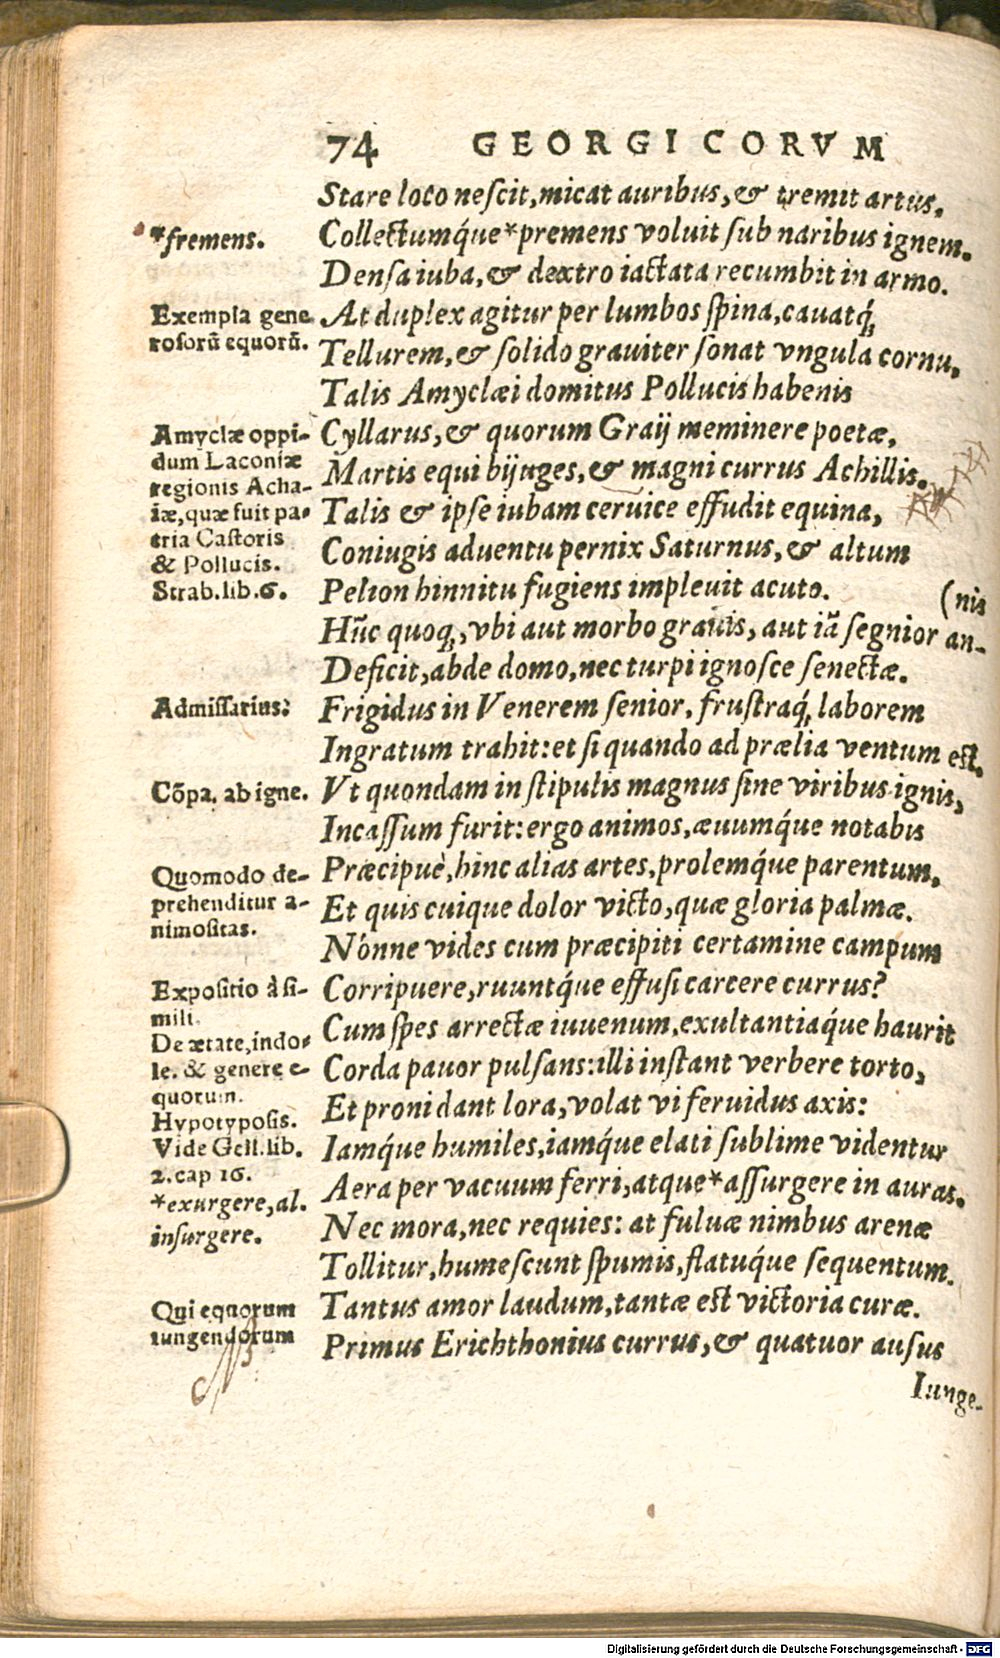 74 GEORGICORVM
Stare loco neſcit, micat auribus, & tremit artus.
*fremens.
Collectumq́ue *premens voluit ſub naribus ignem.
Denſa iuba, & dextro iactata recumbit in armo.
Exempla gene
roſorũ equorũ.
At duplex agitur per lumbos ſpina, cauatq́;
Tellurem, & ſolido grauiter ſonat vngula cornu.
Talis Amyclæi domitus Pollucis habenis
Amyclæ oppi-
dum Laconiæ
regionis Acha-
iæ, quæ fuit pa-
tria Caſtoris
& Pollucis.
Strab. lib. 6.
Cyllarus, & quorum Graij meminere poetæ,
Martis equi bijuges, & magni currus Achillis.
Talis & ipſe iubam ceruice effudit equina,
Coniugis aduentu pernix Saturnus, & altum
Pelion hinnitu fugiens impleuit acuto.
(nis
Hũc quoq;, vbi aut morbo grauis, aut iã ſegnior an-
Deficit, abde domo, nec turpi ignoſce ſenectæ.
Admiſſarius?
Frigidus in Venerem ſenior, fruſtraq́; laborem
Ingratum trahit: et ſi quando ad prælia ventum eſt,
Cõpa. ab igne.
Vt quondam in ſtipulis magnus ſine viribus ignis,
Incaſſum furit: ergo animos, æuumq́ue notabis
Quomodo de-
prehenditur a-
nimoſitas.
Præcipuè, hinc alias artes, prolemq́ue parentum,
Et quis cuique dolor victo, quæ gloria palmæ.
Nónne vides cum præcipiti certamine campum
Expoſitio à ſi-
mili.
De ætate, indo-
le. & genere e-
quorum.
Hypotypoſis.
Vide Gell. lib.
2. cap 16.
*exurgere, al.
inſurgere.
Corripuere, ruuntq́ue effuſi carcere currus?
Cum ſpes arrectæ iuuenum, exultantiaq́ue haurit
Corda pauor pulſans: illi inſtant verbere torto,
Et proni dant lora, volat vi feruidus axis:
Iamq́ue humiles, iamq́ue elati ſublime videntur
Aera per vacuum ferri, atque *aſſurgere in auras.
Nec mora, nec requies: at fuluæ nimbus arenæ
Tollitur, humeſcunt ſpumis, flatuq́ue ſequentum.
Qui equorum
iungendorum
Tantus amor laudum, tantæ eſt victoria curæ.
Primus Erichthonius currus, & quatuor auſus
Iunge-
Digitalisierung gefördert durch die Deutsche Forschungsgemeinschaft - DFG